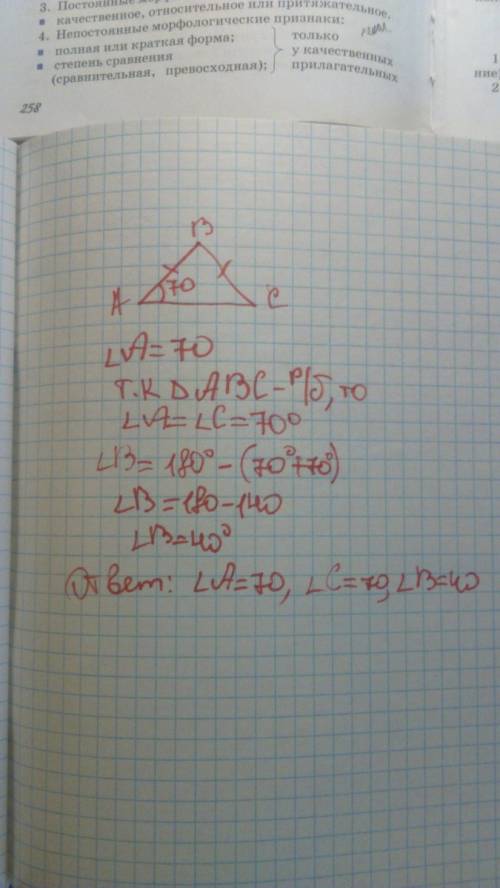 3. Постоянные
качественное, относительное или притяжательное.
4. Непостоянные морфологические признаки:
полная или краткая форма;
степень сравнения
(сравнительная, превосходная);
только
у качественных
прилагательных
1
ние
2
258
B
A 70 C
∠A=70
Т.К Δ ABC - р/б, то
∠A=∠C=70°
∠B= 180° - (70°+70°)
∠B=180-140
∠B=40°
Ответ: ∠A=70, ∠C=70, ∠B=40